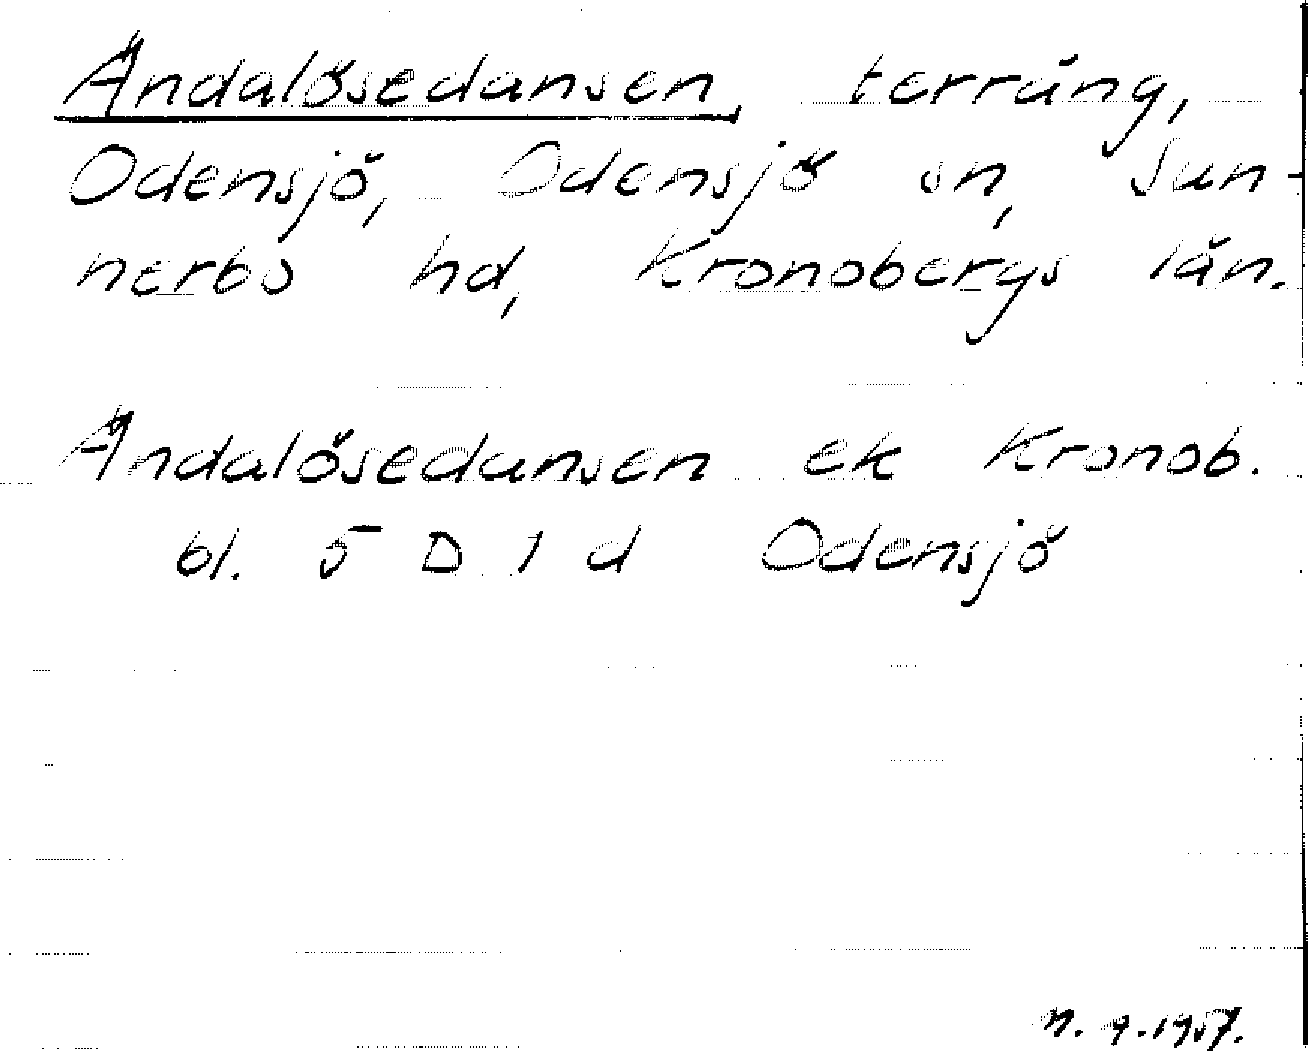 Ändalösedansen, terräng,
Odensjö, Odensjö sn, Sun-
nerbo hd, Kronobergs län.
Ändalösedansen ek Kronob.
bl. 5 D 1 d Odensjö
1957.